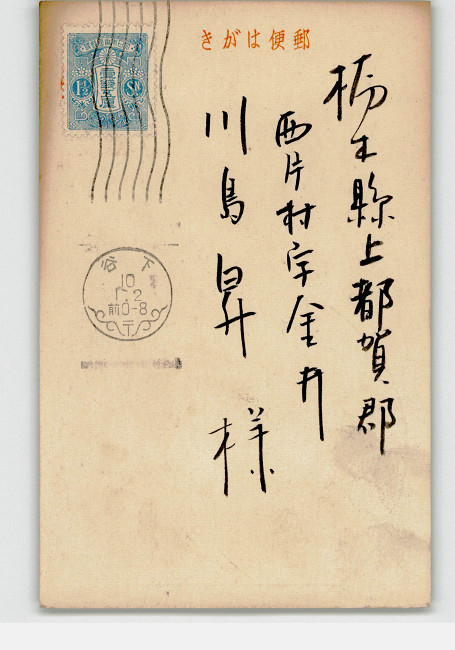 きがは便郵
栃木縣上都賀郡
西片村字金井
川島昇様
1½ Sn
下谷
10
1.2
前0-8